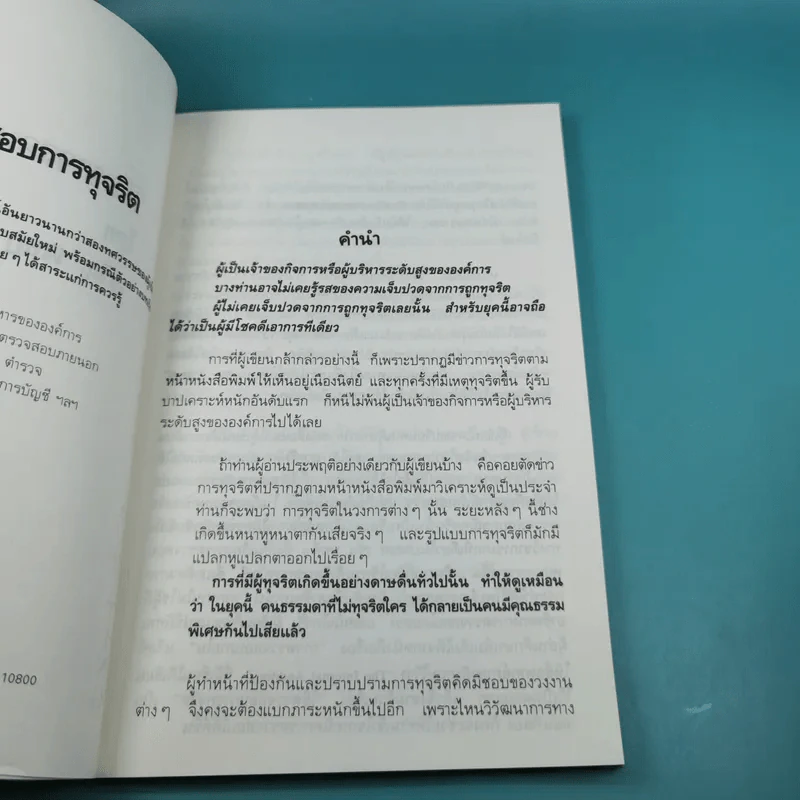 อบการทุจริต
อันยาวนานกว่าสองทศวรรษของผู้
บสมัยใหม่ พร้อมกรณีตัวอย่าง
ย ๆ ได้สาระแก่การควรรู้
หารขององค์การ
ตรวจสอบภายนอก
ตำรวจ
การบัญชี ฯลฯ
10800
คำนำ
ผู้เป็นเจ้าของกิจการหรือผู้บริหารระดับสูงขององค์การ
บางท่านอาจไม่เคยรู้รสของความเจ็บปวดจากการถูกทุจริต
ผู้ไม่เคยเจ็บปวดจากการถูกทุจริตเลยนั้น สำหรับยุคนี้อาจถือ
ได้ว่าเป็นผู้มีโชคดีเอาการทีเดียว
การที่ผู้เขียนกล้ากล่าวอย่างนี้ ก็เพราะปรากฏมีข่าวการทุจริตตาม
หน้าหนังสือพิมพ์ให้เห็นอยู่เนืองนิตย์ และทุกครั้งที่มีเหตุทุจริตขึ้น ผู้รับ
บาปเคราะห์หนักอันดับแรก ก็หนีไม่พ้นผู้เป็นเจ้าของกิจการหรือผู้บริหาร
ระดับสูงขององค์การไปได้เลย
ถ้าท่านผู้อ่านประพฤติอย่างเดียวกับผู้เขียนบ้าง คือคอยตัดข่าว
การทุจริตที่ปรากฏตามหน้าหนังสือพิมพ์มาวิเคราะห์ดูเป็นประจำ
ท่านก็จะพบว่า การทุจริตในวงการต่าง ๆ นั้น ระยะหลัง ๆ นี้ช่าง
เกิดขึ้นหนาหูหนาตากันเสียจริง ๆ และรูปแบบการทุจริตก็มักมี
แปลกหูแปลกตาออกไปเรื่อย ๆ
การที่มีผู้ทุจริตเกิดขึ้นอย่างดาษดื่นทั่วไปนั้น ทำให้ดูเหมือน
ว่า ในยุคนี้ คนธรรมดาที่ไม่ทุจริตใคร ได้กลายเป็นคนมีคุณธรรม
พิเศษกันไปเสียแล้ว
ผู้ทำหน้าที่ป้องกันและปราบปรามการทุจริตคิดมิชอบของวงงาน
ต่าง ๆ จึงคงจะต้องแบกภาระหนักขึ้นไปอีก เพราะไหนวิวัฒนาการทาง